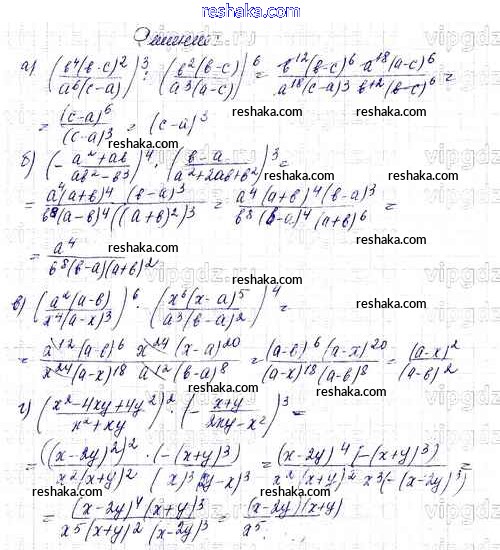 reshaka.com
Решение:
а) (b⁴(b-c)²/a⁶(c-a))³ : (b²(b-c)/a³(a-c))⁶ = b¹²(b-c)⁶ a¹⁸(a-c)⁶/a¹⁸(c-a)³ b¹²(b-c)⁶ =
= (c-a)⁶/(c-a)³ = (c-a)³
б) (- a²+ab/ab²-b³)⁴ · (b-a/a²+2ab+b²)³ =
= a⁴(a+b)⁴ · (b-a)³/b⁸(a-b)⁴((a+b)²)³ = a⁴(a+b)⁴(b-a)³/b⁸(b-a)⁴(a+b)⁶ =
= a⁴/b⁸(b-a)(a+b)²
в) (a²(a-b)/x⁴(a-x)³)⁶ · (x⁶(x-a)⁵/a³(b-a)²)⁴ =
= a¹²(a-b)⁶ x²⁴(x-a)²⁰/x²⁴(a-x)¹⁸ a¹²(b-a)⁸ = (a-b)⁶(a-x)²⁰/(a-x)¹⁸(a-b)⁸ = (a-x)²/(a-b)²
г) (x²-4xy+4y²/x²+xy)² · (- x+y/2xy-x²)³ =
= ((x-2y)²)² · (-(x+y)³)/x²(x+y)² (x)³(2y-x)³ = (x-2y)⁴(-(x+y)³)/x²(x+y)² x³(-(x-2y)³) =
= (x-2y)⁴(x+y)³/x⁵(x+y)²(x-2y)³ = (x-2y)(x+y)/x⁵.